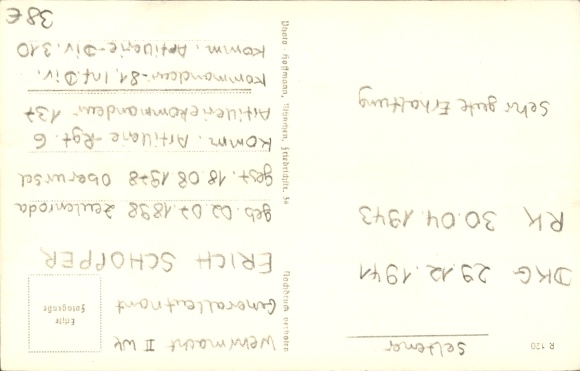 R 120
seltener
DKG 29.12.1941
RK 30.04.1943
Sehr gute Erhaltung
Photo: Hoffmann, München, Friedrichstr. 34
Nachdruck verboten
Wehrmacht II Wk
Generalleutnant
Echte
Fotografie
ERICH SCHOPPER
geb. 02.07.1898 Zeulenroda
gest. 18.08.1978 Oberursel
Komm. Artillerie-Rgt. 6
Artilleriekommandeur 137
Kommandeur-81. Inf.Div.
Komm. Artillerie-Div. 310
38€